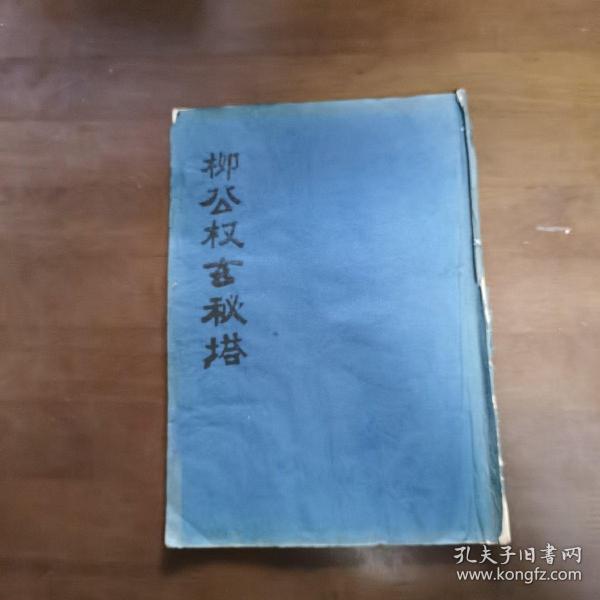 柳公权玄秘塔
孔夫子旧書网
www.kongfz.com